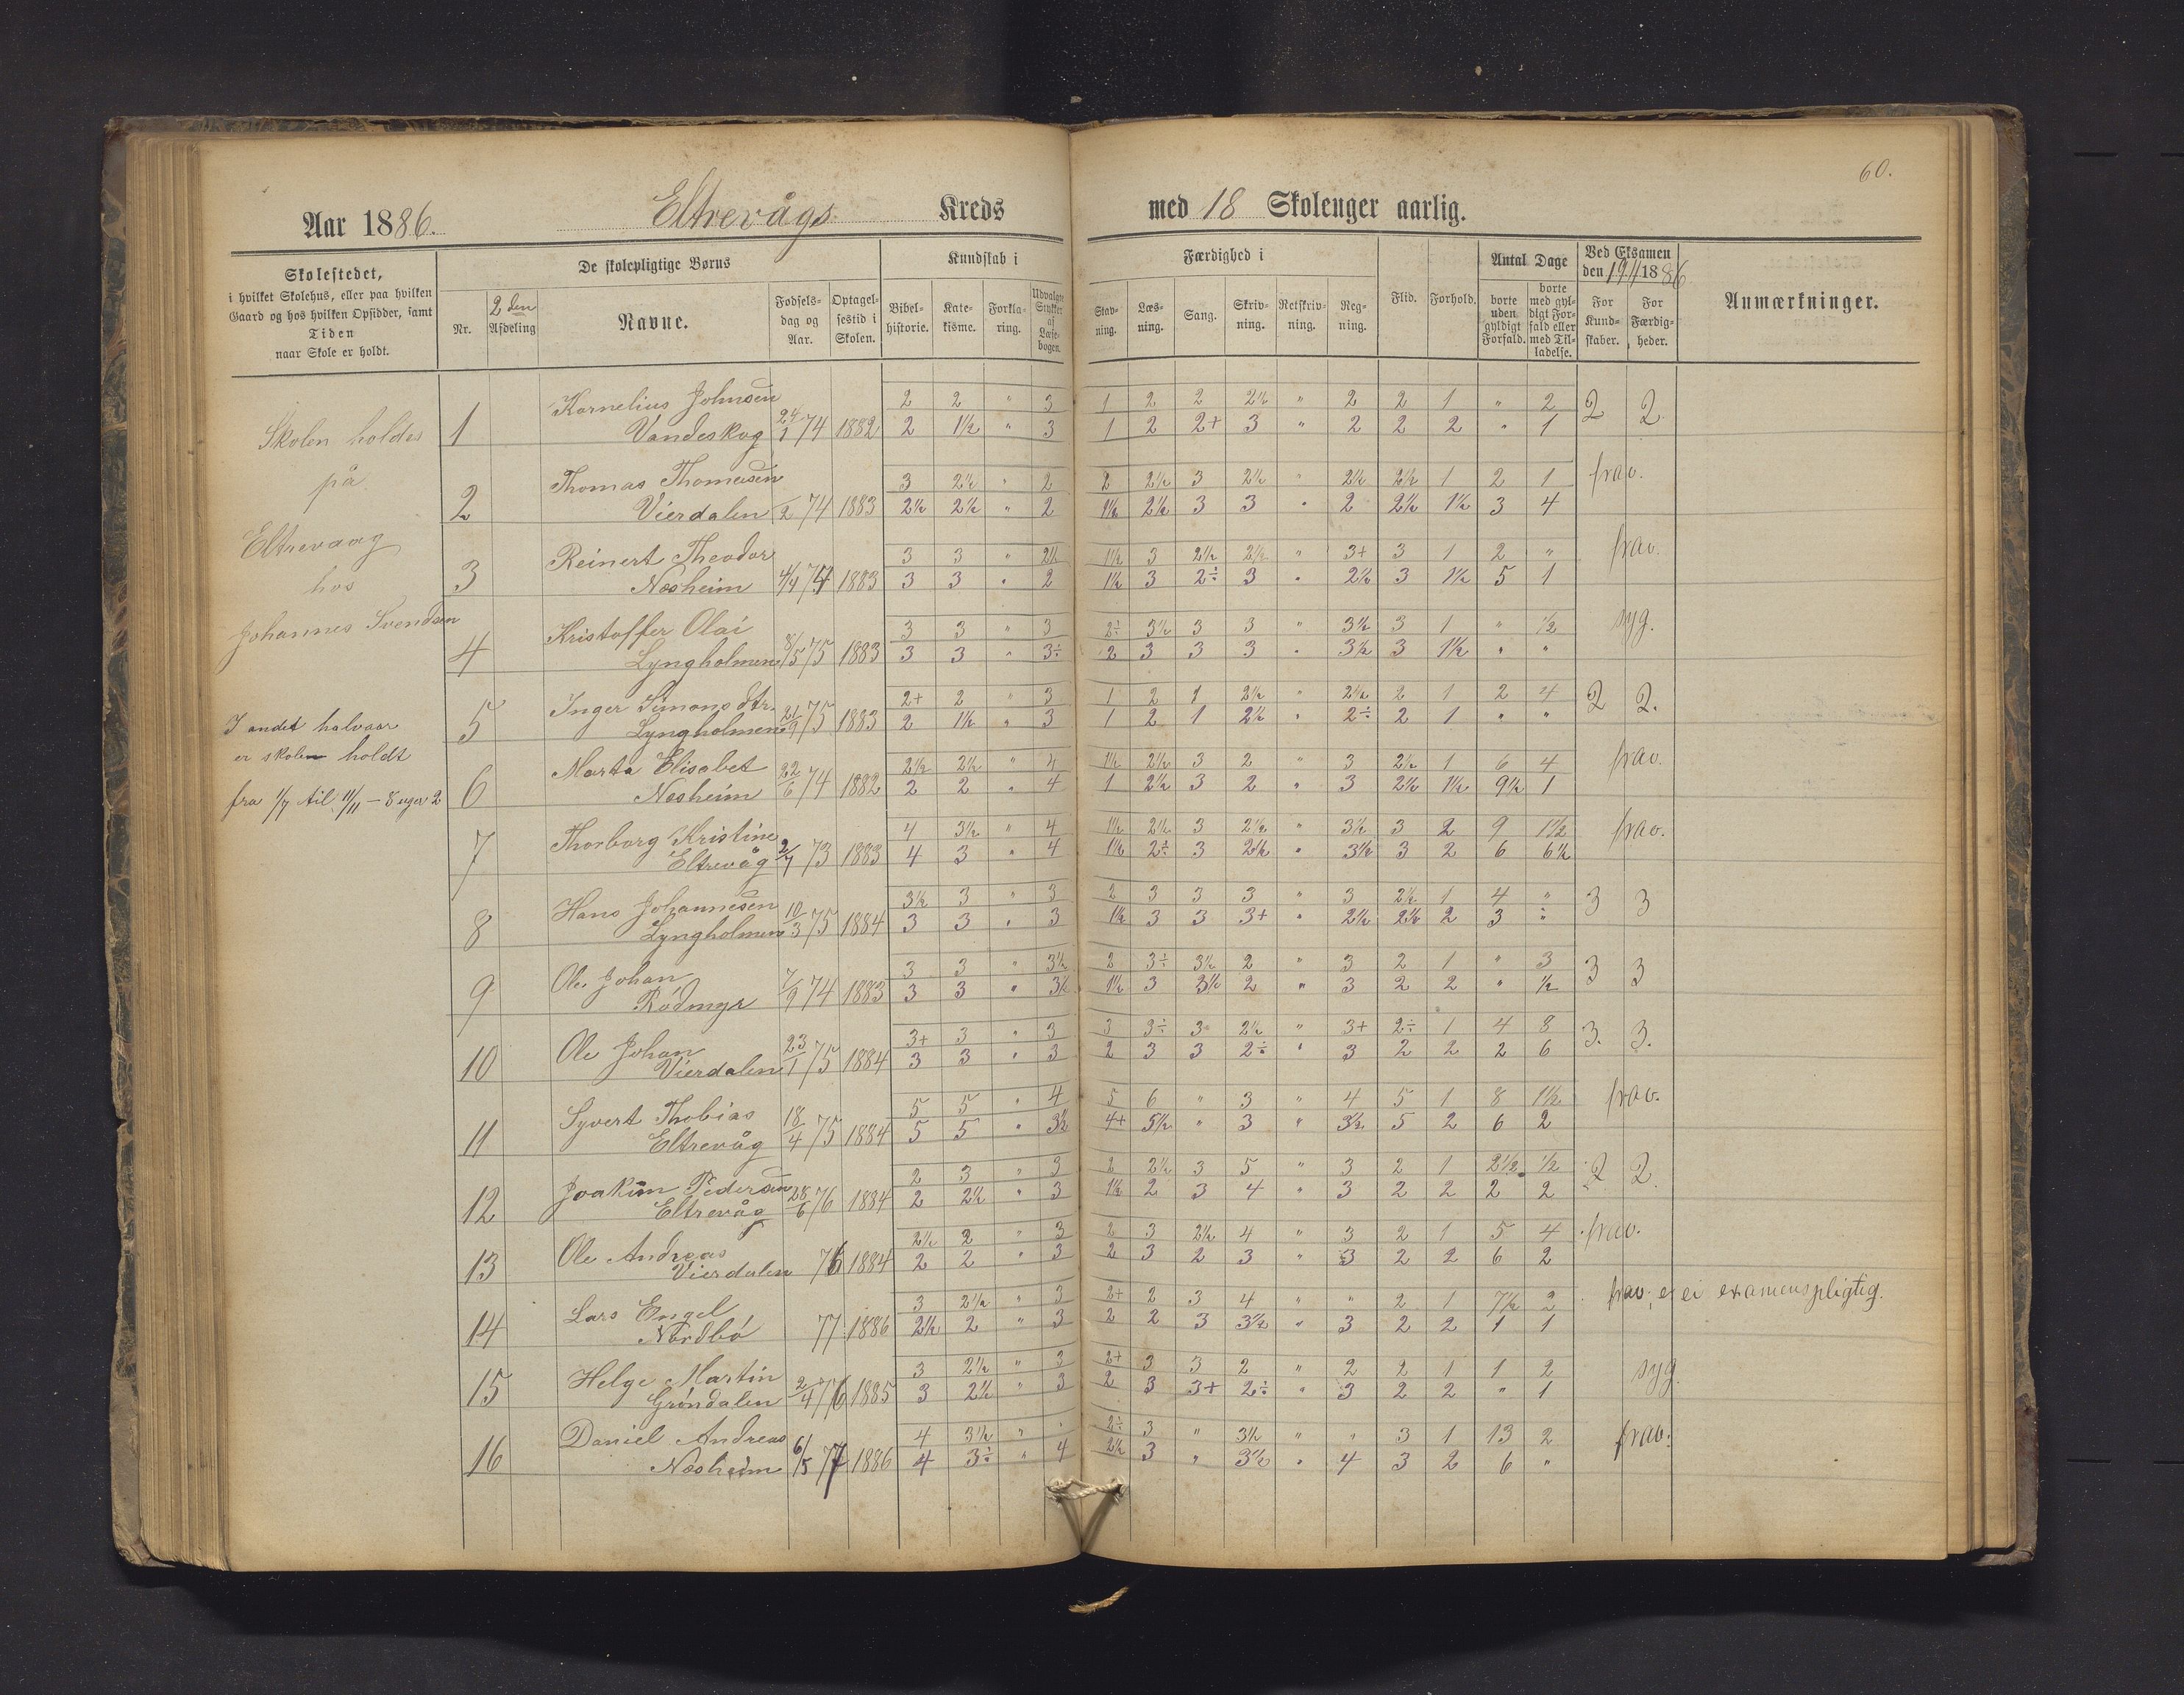 60.
Aar 1886. Eltrevågs Kreds med 18 Skoleuger aarlig.
Skolestedet,
i hvilket Skolehus, eller paa hvilken
Gaard og hos hvilken Opsidder, samt
Tiden
naar Skole er holdt.
De skolepligtige Børns
Nr.
2den
Afdeling
Navne.
Fødsels-
dag og
Aar.
Optagel-
sestid i
Skolen.
Kundskab i
Bibel-
historie.
Kate-
kisme.
Forkla-
ring.
Udvalgte
Stykker
af
Læse-
bogen.
Færdighed i
Stav-
ning.
Læs-
ning.
Sang.
Skriv-
ning.
Retskriv-
ning.
Reg-
ning.
Flid.
Forhold.
Antal Dage
borte
uden
gyldigt
Forfald.
borte
med gyl-
digt For-
fald eller
med Til-
ladelse.
Ved Eksamen
den 19/11 1886
For
Kund-
skaber.
For
Færdig-
heder.
Anmærkninger.
Skolen holdes
på
Eltrevaag
hos
Johannes Svendsen
I andet halvaar
er skolen holdt
fra 1/7 til 11/11 — 8 uger 2
1 Kornelius Johnsen 2 2 " 3 1 2 2 2½ " 2 2 1 " 2 2 2
Vandeskog 24/1 74 1882 2 1½ " 3 1 2 2+ 3 " 2 2 2 " 1
2 Thomas Thomassen 3 2½ " 2 2 2½ 3 2½ " 2½ 2½ 1 2 1 frav.
Vierdalen /2 74 1883 2½ 2½ " 2 1½ 2½ 3 3 " 2 2½ 1½ 3 4
3 Reinert Theodor 3 3 " 2½ 1½ 3 2½ 2½ " 3+ 3 1 2 " frav.
Nesheim 4/4 74 1883 3 3 " 2 1½ 3 2÷ 3 " 2½ 3 1½ 5 1
4 Kristoffer Olai 3 3 " 3 2÷ 3½ 3 3 " 3½ 3 1 " ½ syg.
Lyngholmen 8/5 75 1883 3 3 " 3÷ 2 3 3 3 " 3½ 3 1½ " "
5 Inger Simonsdtr. 2+ 2 " 3 1 2 1 2½ " 2½ 2 1 2 4 2 2.
Lyngholmen 21/9 75 1883 2 1½ " 3 1 2 1 2½ " 2÷ 2 1 " "
6 Marta Elisabet 2½ 2½ " 4 1½ 2½ 3 2 " 3 2½ 1 6 4 frav.
Nesheim 22/6 74 1882 2 2 " 4 1 2½ 3 2 " 3 2½ 1½ 9½ 1
7 Thorborg Kristine 4 3½ " 4 1½ 2½ 3 2½ " 3½ 3 2 9 1½ frav.
Eltrevåg 2/7 73 1883 4 3 " 4 1½ 2÷ 3 2½ " 3½ 3 2 6 6½
8 Hans Johannesen 3½ 3 " 3 2 3 3 3 " 3 2½ 1 4 " 3 3
Lyngholmen 10/3 75 1884 3 3 " 3 1½ 3 3 3+ " 2½ 2½ 2 3 ÷
9 Ole Johan 3 3 " 3½ 2 3÷ 3½ 2 " 3 2 1 " 3 3 3
Rødmyr 7/9 74 1883 3 3 " 3½ 1½ 3 3½ 2 " 3 2 2 " ½
10 Ole Johan 3+ 3 " 3 3 3÷ 3 2½ " 3+ 2÷ 1 4 8 3. 3.
Vierdalen 23/1 75 1884 3 3 " 3 2 3 3 2÷ " 3 2 2 2 6
11 Syvert Thobias 5 5 " 4 5 6 " 3 " 4 5 1 8 1½ frav.
Eltrevåg 18/4 75 1884 5 5 " 3½ 4+ 5½ " 3 " 3½ 5 2 6 2
12 Joakim Pedersen 2 3 " 3 2 2½ 3 5 " 3 2 1 2½ ½ 2 2
Eltrevåg 28/6 76 1884 2 2½ " 3 1½ 2 3 4 " 3 2 2 2 2
13 Ole Andreas 2½ 2 " 3 2 3 2½ 4 " 3 2 1 5 4 frav.
Vierdalen 76 1884 2 2 " 3 2 3 2 3 " 3 2 2 6 2
14 Lars Engel 3 2½ " 3 2+ 2 3 4 " " 2 1 7½ 2 frav, er ei examenspligtig.
Nordbø 77 1886 2½ 2 " 3 2 2 3 3½ " 3 2 2 1 1
15 Helge Martin 3 2½ " 3 2+ 3 3 2 " 2 2 1 1 2 syg.
Grøndalen 2/4 76 1885 3 2½ " 3 2 3 3+ 2÷ " 3 2 2 " 1
16 Daniel Andreas 4 3½ " " 2÷ 3 " 3½ " " 3 1 13 2 frav.
Nesheim 6/5 77 1886 4 3÷ " 4 2½ 3 " 3½ " 4 3 2 6 "